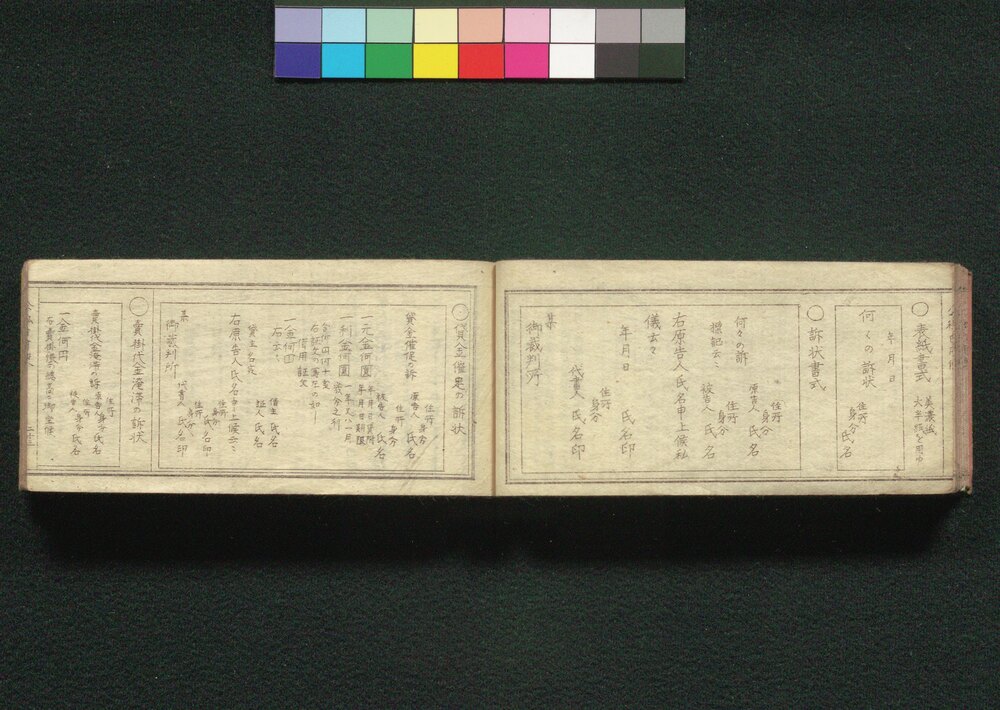 〇表紙書式 美濃紙 大半紙を用ゆ
年月日
何々の訴状
住所
身分
氏名
〇訴状書式
何々の訴
住所
原告人 身分
氏名
住所
被告人 身分
氏名
右原告人氏名申上候私
儀云々
年月日 氏名印
住所
身分
代書人 氏名印
某
御裁判所
〇貸金催促の訴状
貸金催促の訴
住所
原告人 身分
氏名
住所
被告人 身分
氏名
一元金何圓
一利金何圓
右証文の寫左の如し
借用証文
一金何円
右云々
借主 氏名
証人 氏名
貸主名宛
右原告人氏名申上候云々
住所
身分
氏名印
住所
身分
代書人 氏名印
某
御裁判所
〇賣掛代金淹滞の訴状
賣掛代金淹滞の訴
住所
原告人 身分 氏名
住所
被告人 身分 氏名
一金何円